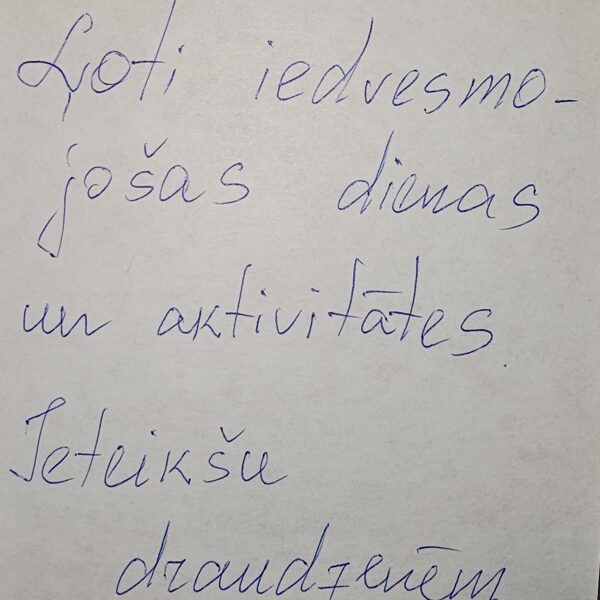 Ļoti iedvesmo-
jošas dienas
un aktivitātes.
Ieteikšu
draudzenēm